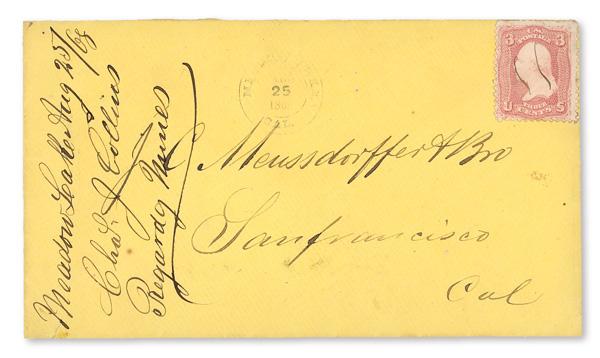 Meadow Lake Aug 25/68
Chas J Collins
Regardg Mines
25
186
CAL.
U.S.
3 3
U THREE CENTS S
C Meussdorffer & Bro
Sanfrancisco
Cal